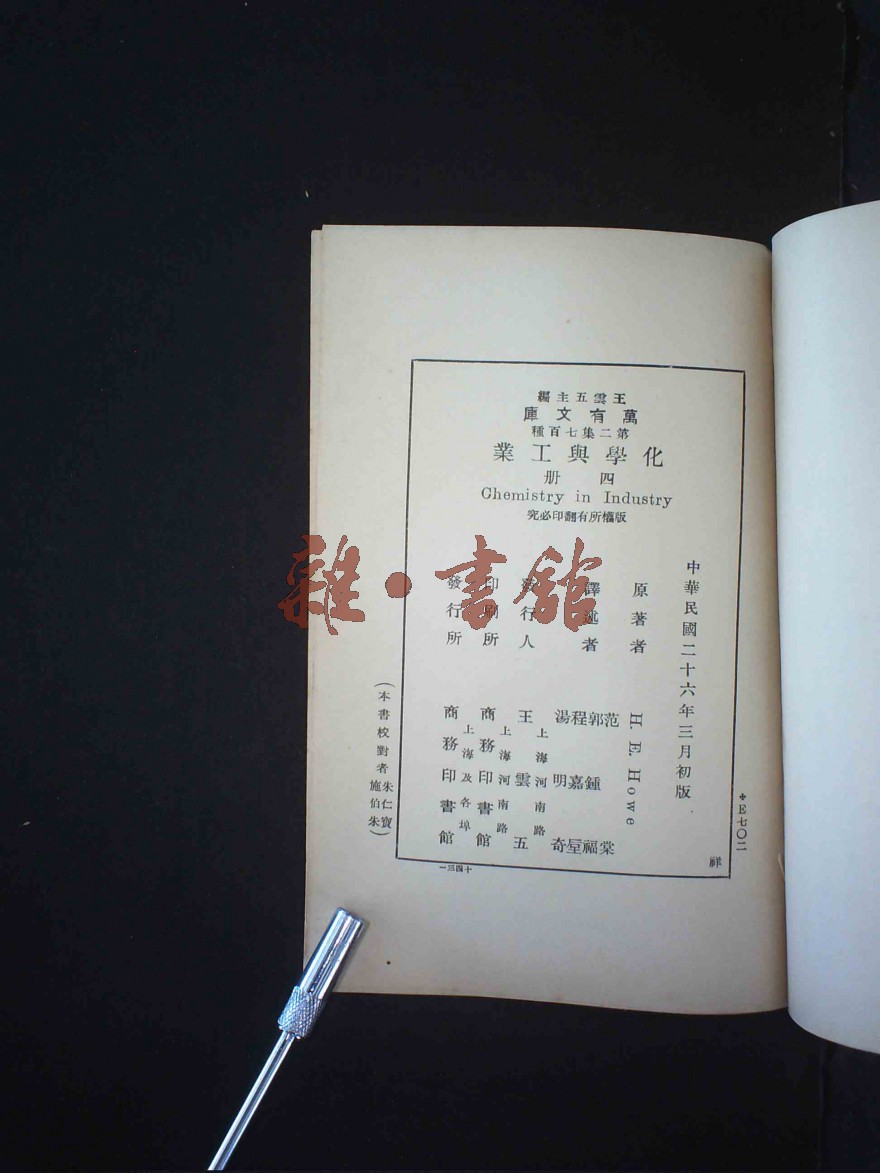 王雲五主編
萬有文庫
第二集七百種
化學與工業
四册
Chemistry in Industry
版權所有翻印必究
中華民國二十六年三月初版
原著者 H. E. Howe
譯述者 范棠
郭鍾福
程嘉垕
湯明奇
發行人 王雲五
上海河南路
印刷所 商務印書館
上海河南路
發行所 商務印書館
上海及各埠
(本書校對者 朱仁寶 施伯朱)
E七〇二
祥
十四三一
雜·書館